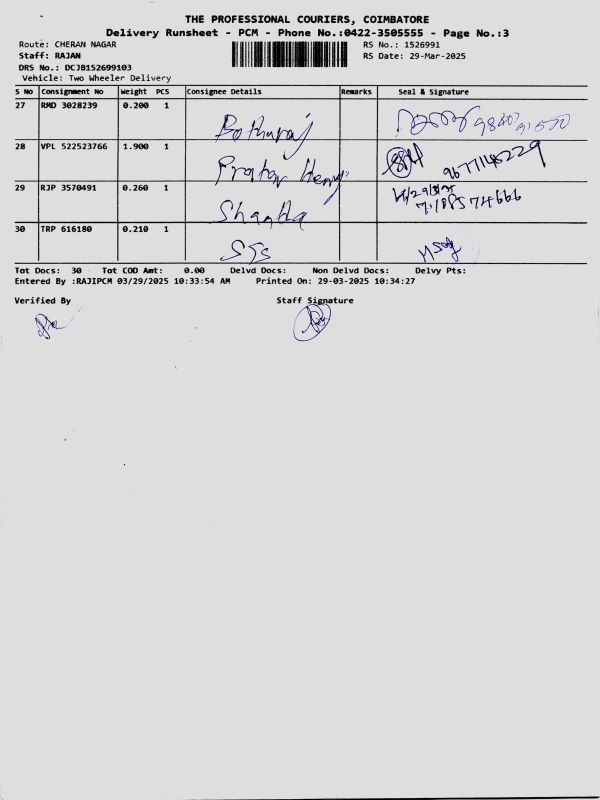 THE PROFESSIONAL COURIERS, COIMBATORE
Delivery Runsheet - PCM - Phone No.:0422-3505555 - Page No.:3
Route: CHERAN NAGAR RS No.: 1526991
Staff: RAJAN RS Date: 29-Mar-2025
DRS No.: DCJB152699103
Vehicle: Two Wheeler Delivery
S No Consignment No Weight PCS Consignee Details Remarks Seal & Signature
27 RMD 3028239 0.200 1
Botharaj
28 VPL 522523766 1.900 1
Pratap Henry 9677145229
29 RJP 3570491 0.260 1
Shantha
30 TRP 616180 0.210 1
SSS
Tot Docs: 30 Tot COD Amt: 0.00 Delvd Docs: Non Delvd Docs: Delvy Pts:
Entered By :RAJIPCM 03/29/2025 10:33:54 AM Printed On: 29-03-2025 10:34:27
Verified By Staff Signature